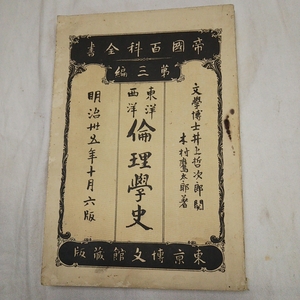 帝國百科全書
第三編
文學博士井上哲次郎閲
木村鷹太郎著
東洋
西洋
倫理學史
明治卅五年十月六版
東京博文館藏版